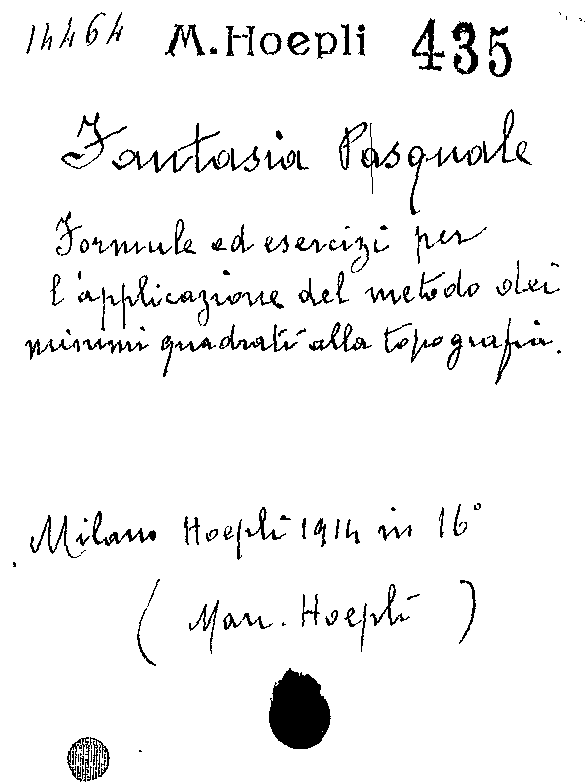 14464 M. Hoepli 435
Fantasia Pasquale
Formule ed esercizi per
l'applicazione del metodo dei
minimi quadrati alla topografia.
Milano Hoepli 1914 in 16°
( Man. Hoepli )